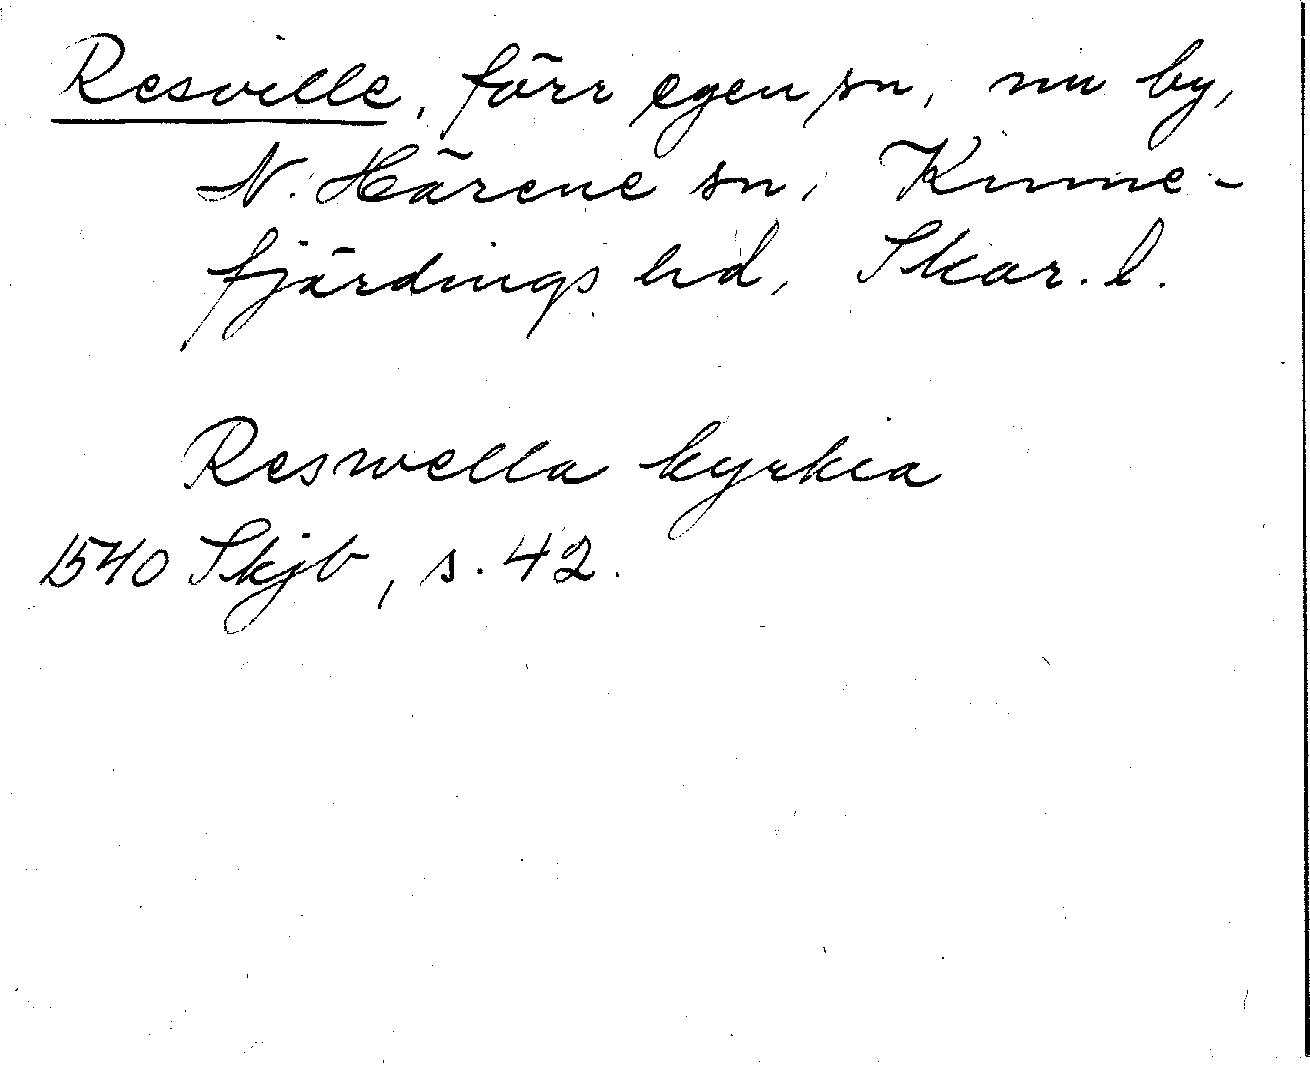 Resville, förr egen sn, nu by,
N. Härene sn, Kinne-
fjärdings hd, Skar. l.
Reswella kyrkia
1540 Skjb, s. 42.